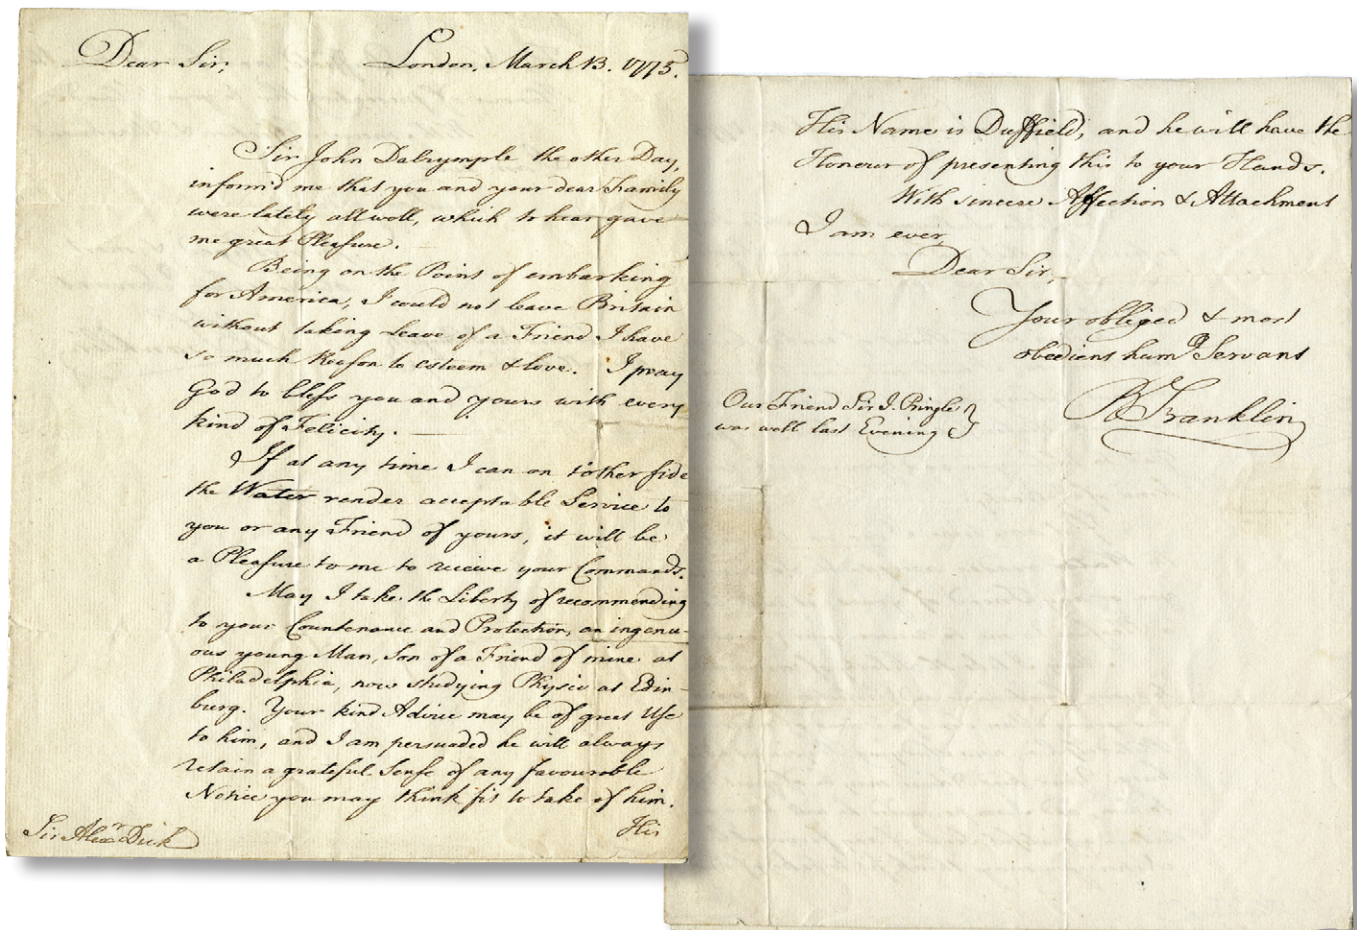 Dear Sir, London, March 13. 1775.
Sir John Dalrymple the other Day,
inform'd me that you and your dear Family
were lately all well, which to hear gave
me great Pleasure. —
Being on the Point of embarking
for America, I could not leave Britain
without taking Leave of a Friend I have
so much Reason to esteem & love. I pray
God to bless you and yours with every
kind of Felicity. —
If at any time I can on t'other side
the Water render acceptable Service to
you or any Friend of yours, it will be
a Pleasure to me to receive your Commands.
May I take the Liberty of recommending
to your Countenance and Protection, an ingenu-
ous young Man, Son of a Friend of mine at
Philadelphia, now studying Physic at Edin-
burg. Your kind Advice may be of great Use
to him, and I am persuaded he will always
retain a grateful Sense of any favourable
Notice you may think fit to take of him.
His
Sir Alexr Dick
His Name is Duffield, and he will have the
Honour of presenting this to your Hands.
With sincere Affection & Attachment
I am ever,
Dear Sir,
Your obliged & most
obedient humle Servant
B Franklin
Our Friend Sir J. Pringle
was well last Evening